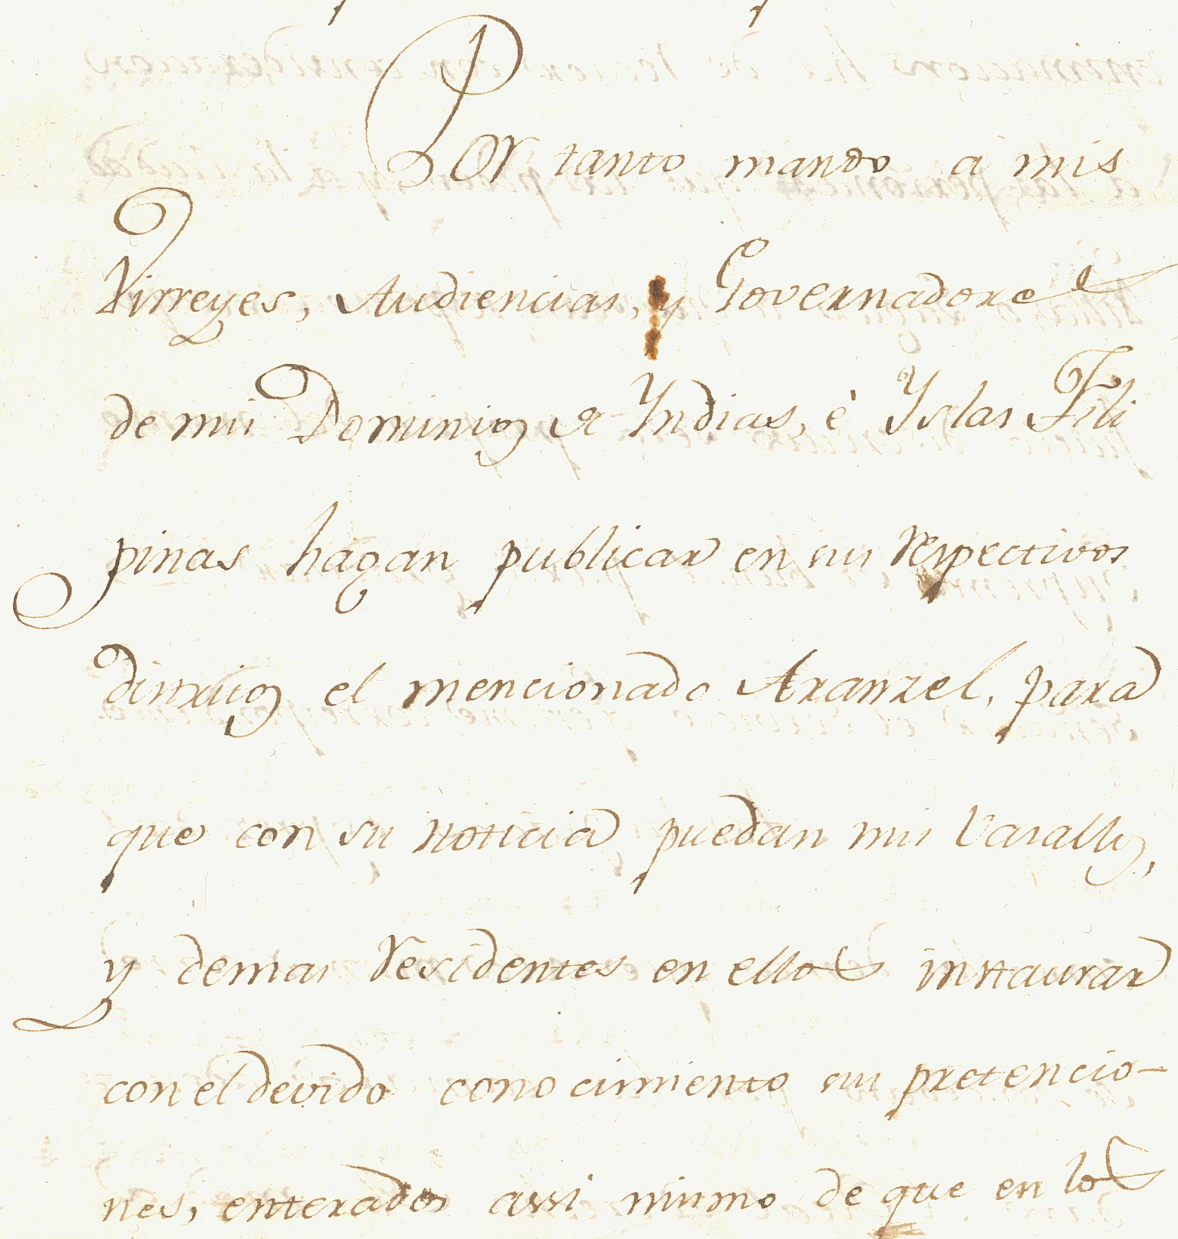 Por tanto mando a mis
Virreyes, Audiencias, y Governadores
de mis Dominios de Yndias, è Yslas Fili
pinas hagan publicar en sus respectivos
distritos el mencionado Aranzel, para
que con su noticia puedan mis Vasallos,
y demas residentes en ellos instaurar
con el devido conocimiento sus pretencio-
nes, enterados assi mismo de que en los